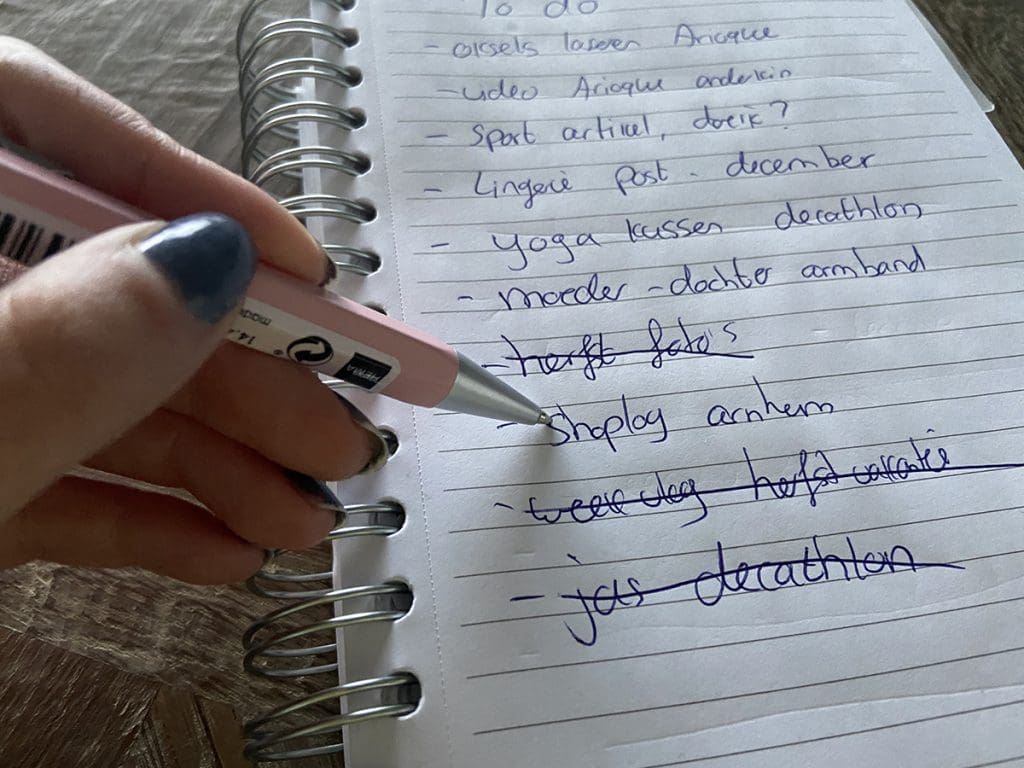 To do
- oksels laseren Arioque
- video Arioque anderkin
- Sport artikel, doeik?
- Lingerie post - december
- yoga kussen decathlon
- moeder - dochter armband
- herfst foto's
- Shoplog arnhem
- weekvlog herfst vakantie
- jas decathlon
HEMA
14.